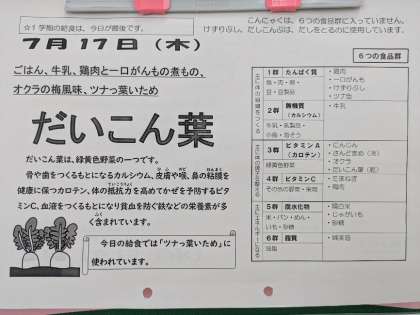 ☆1学期の給食は、今日が最後です。
こんにゃくは、6つの食品群に入っていません。
けずりぶし、だしこんぶは、だしをとるのに使用しています。
7月17日(木)
ごはん、牛乳、鶏肉と一口がんもの煮もの、
オクラの梅風味、ツナっ葉いため
だいこん葉
だいこん葉は、緑黄色野菜の一つです。
骨や歯をつくるもとになるカルシウム、皮膚や喉、鼻の粘膜を
健康に保つカロテン、体の抵抗力を高めてかぜを予防するビタ
ミンC、血液をつくるもとになり貧血を防ぐ鉄などの栄養素が多
く含まれています。
今日の給食では「ツナっ葉いため」に
使われています。
6つの食品群
1群 たんぱく質
魚・肉・卵・
豆・豆製品
・鶏肉
・一口がんも
・けずりぶし
・ツナ缶
2群 無機質
(カルシウム)
牛乳・乳製品・
小魚・海そう
・牛乳
3群 ビタミンA
(カロテン)
緑黄色野菜
・にんじん
・オクラ
・だいこん葉
4群 ビタミンC
その他の野菜・果物
5群 炭水化物
米・パン・めん・
いも・砂糖
・精白米
・じゃがいも
・砂糖
6群 脂質
油脂